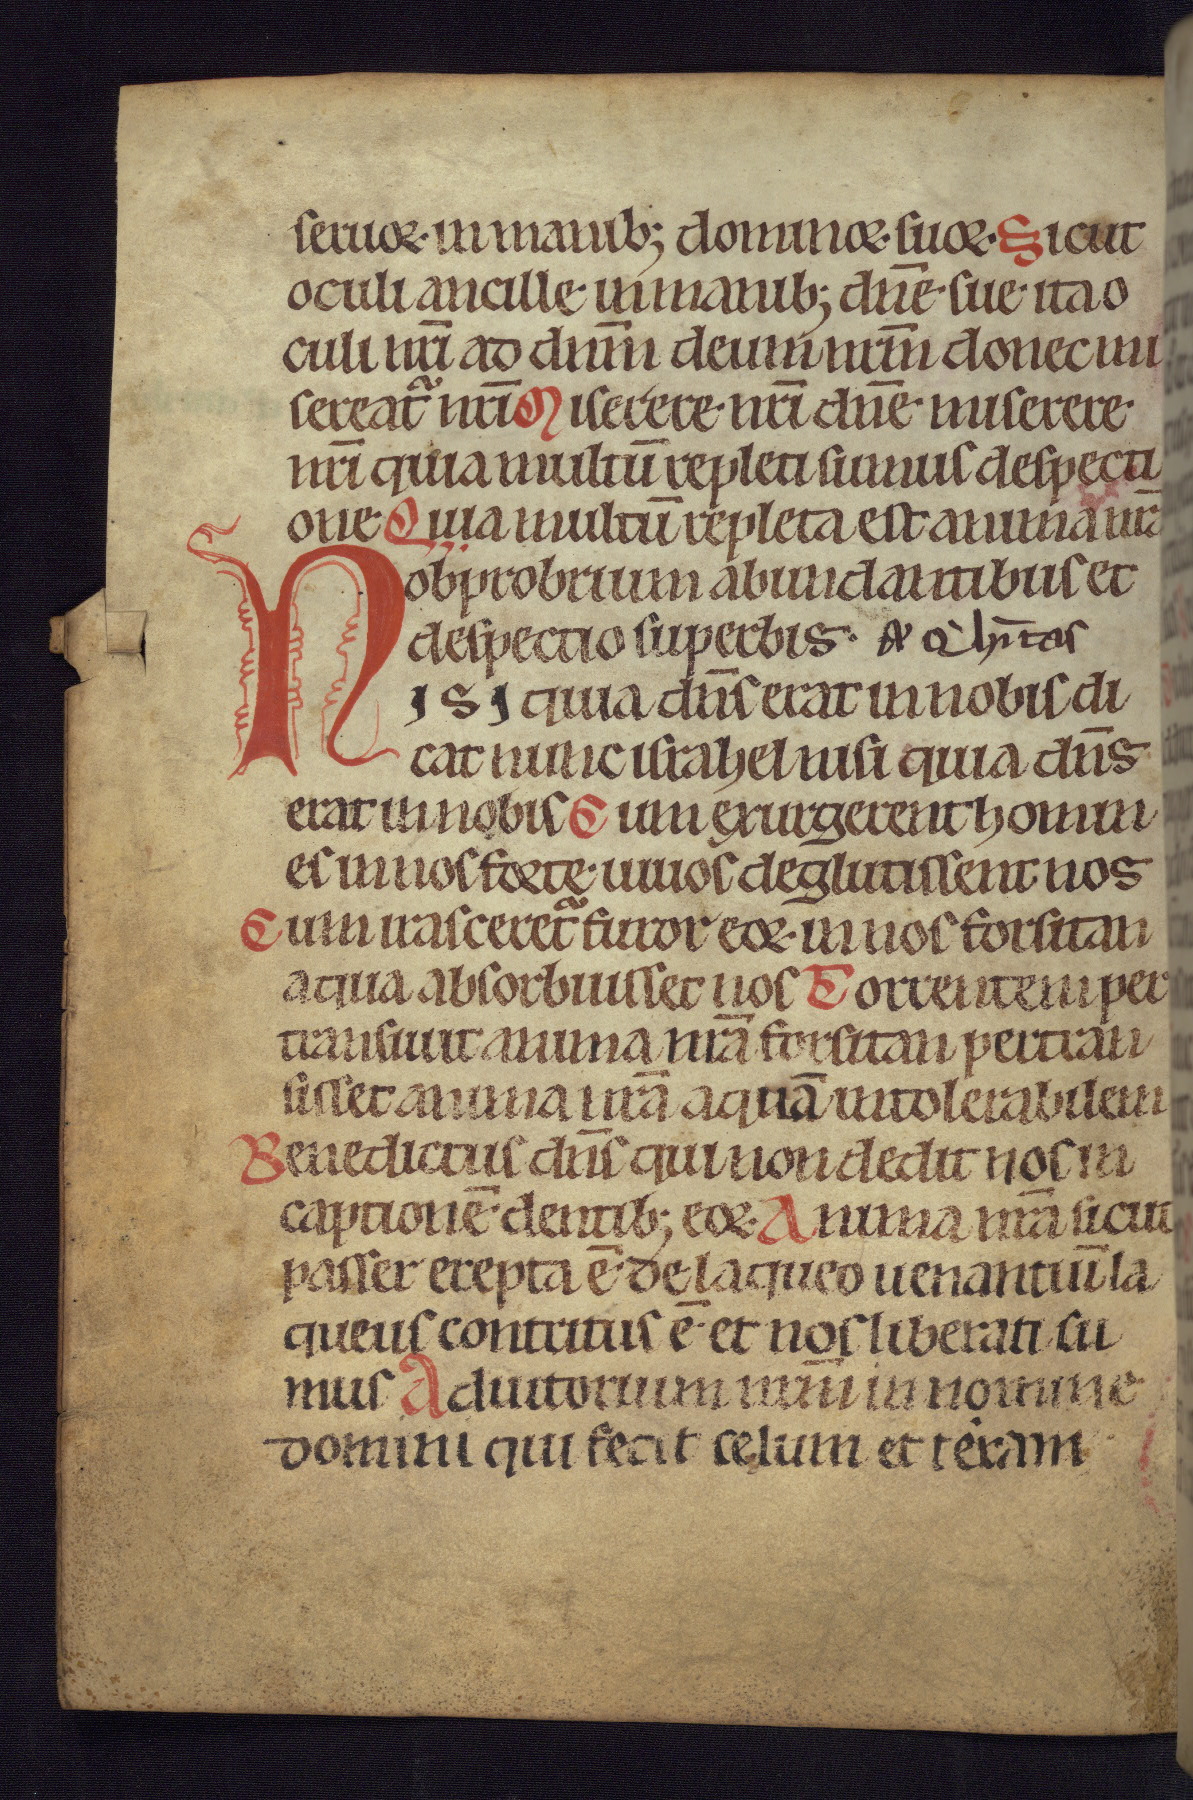 seruoꝝ· in manib; dominoꝝ· suoꝝ· Sicut
oculi ancille in manib; dn̄e· sue· ita o
culi nr̄i ad dn̄m deum nr̄m donec mi
sereat᷑ nr̄i Miserere· nr̄i dn̄e· miserere·
nr̄i quia multū repleti sumus despecti
one Quia multū repleta est anima nr̄a
obprobrium abundantibus et
despectio superbis·
NISI quia dn̄s erat in nobis di
cat nunc israhel nisi quia dn̄s
erat in nobis Cum exurgerent homin
es in nos forte· uiuos deglutissent nos
Cum irasceret᷑ furor eoꝝ· in nos forsitan
aqua absorbuisset nos Torrentem per
transiuit anima nr̄a forsitan pertran
sisset anima nr̄a aquā intolerabilem
Benedictus dn̄s qui non dedit nos in
captionē· dentib; eoꝝ· Anima nr̄a sicut
passer erepta ē· de laqueo uenantiū la
queus contritus ē· et nos liberati su
mus Adiutorium nr̄m in nomine
domini qui fecit celum et teram